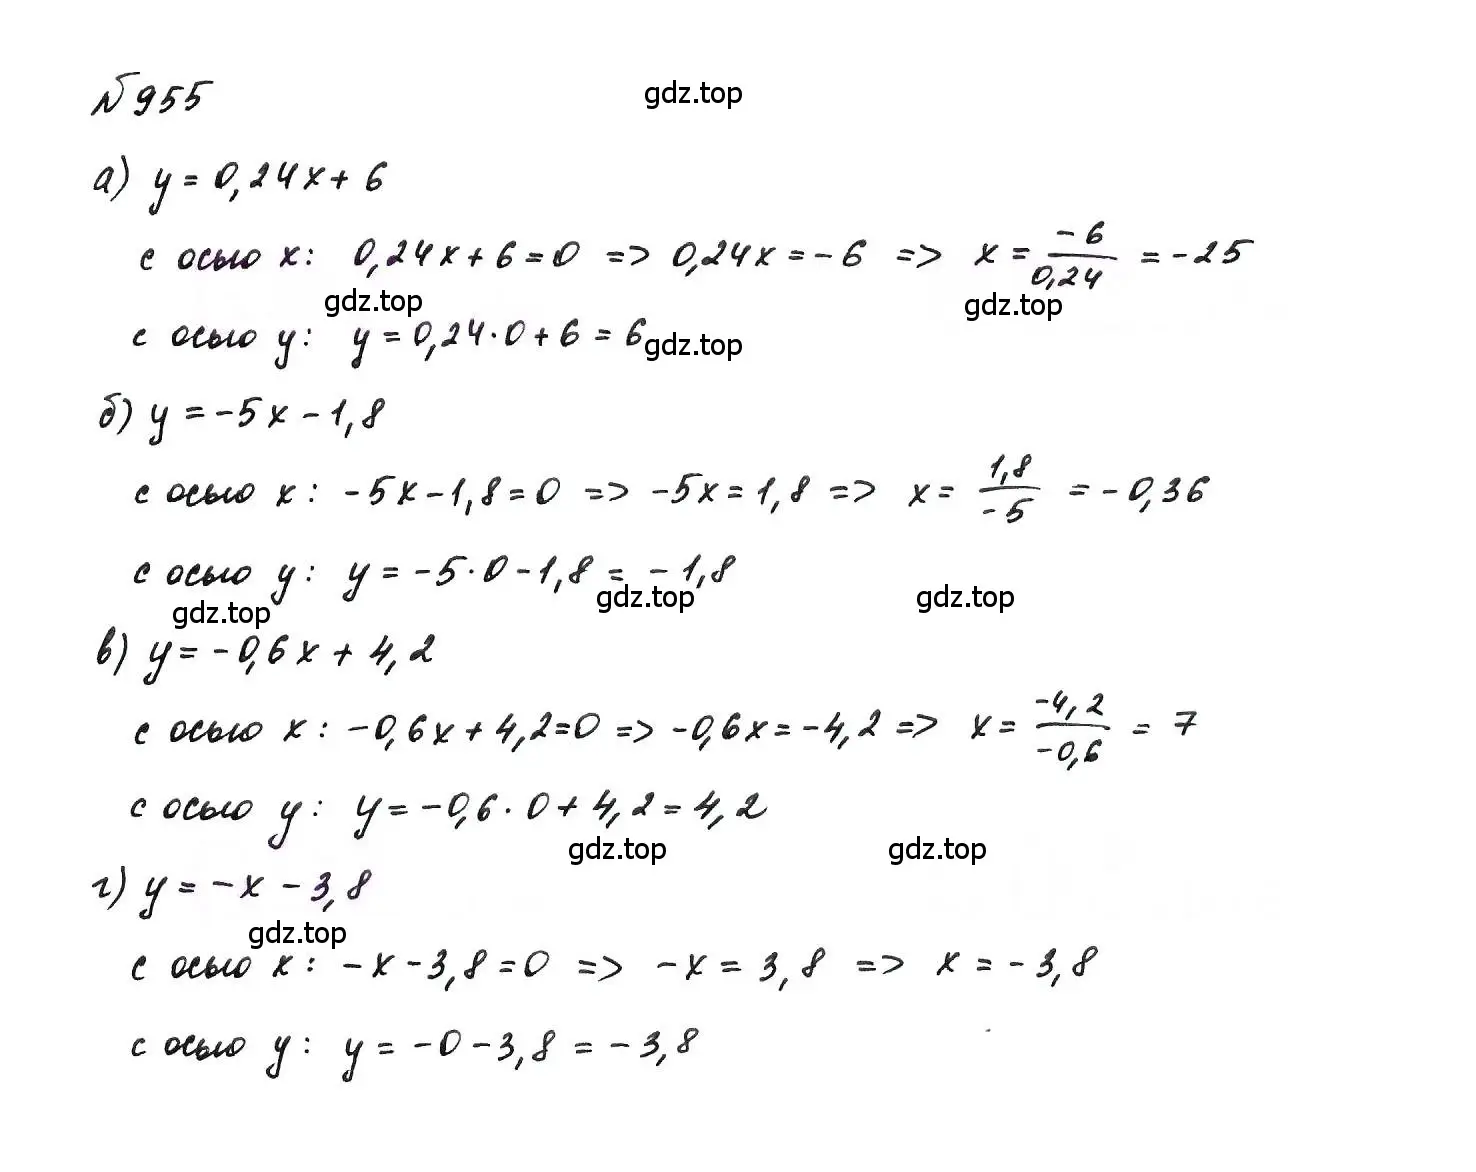 №955
gdz.top
а) y = 0,24x + 6
с осью x: 0,24x + 6 = 0 => 0,24x = -6 => x = -6/0,24 = -25
gdz.top
gdz.top
с осью y: y = 0,24·0 + 6 = 6
gdz.top
б) y = -5x - 1,8
с осью x: -5x - 1,8 = 0 => -5x = 1,8 => x = 1,8/-5 = -0,36
с осью y: y = -5·0 - 1,8 = -1,8
gdz.top
gdz.top
gdz.top
в) y = -0,6x + 4,2
с осью x: -0,6x + 4,2 = 0 => -0,6x = -4,2 => x = -4,2/-0,6 = 7
с осью y: y = -0,6·0 + 4,2 = 4,2
gdz.top
gdz.top
г) y = -x - 3,8
gdz.top
с осью x: -x - 3,8 = 0 => -x = 3,8 => x = -3,8
с осью y: y = -0 - 3,8 = -3,8